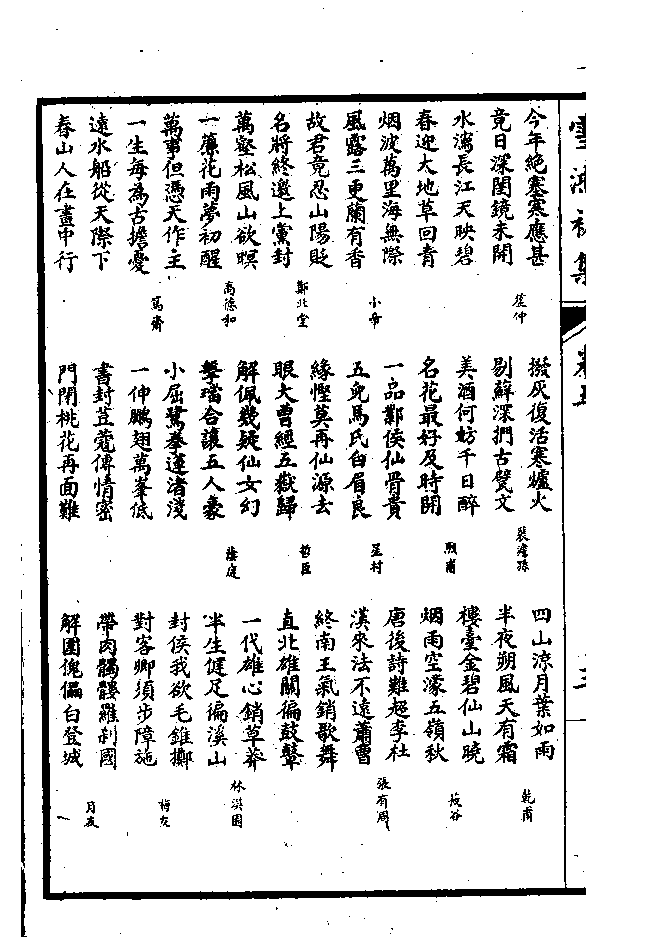 今年絕塞寒應甚
竟日深閨鏡未開
水滿長江天映碧
春迎大地草回青
烟波萬里海無際
風露三更蘭有香
故君竟忍山陽貶
名將終邀上黨封
鄭北堂
萬壑松風山欲暝
一簾花雨夢初醒
高德和
萬事但憑天作主
一生每為古擔憂
篤齋
遠水船從天際下
春山人在畫中行
撥灰復活寒爐火
剔蘚深捫古甃文
美酒何妨千日醉
名花最好及時開
一品鄴侯仙骨貴
五兒馬氏白眉良
星村
緣慳莫再仙源去
眼大曾經五嶽歸
哲臣
解佩幾疑仙女幻
擊璫合讓五人豪
蔭庭
小屈鷺拳蓮渚淺
一伸鵬翅萬峯低
書封荳蔻傳情密
門閉桃花再面難
四山涼月葉如雨
半夜朔風天有霜
乾甫
樓臺金碧仙山曉
烟雨空濛五嶺秋
筱谷
唐後詩難超李杜
漢來法不遠蕭曹
張有周
終南王氣銷歌舞
直北雄關偏鼓鼙
一代雄心銷草莽
半生健足徧溪山
林漢園
封侯我欲毛錐擲
對客卿須步障施
梅友
帶肉髑髏羅刹國
解圍傀儡白登城
月友